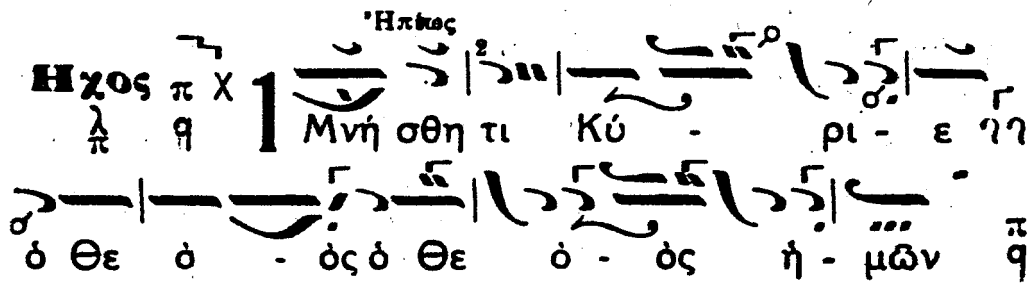 Ἠπίως
Ηχος π χ
λ π q Μνή σθη τι Κύ - ρι - ε
ὁ Θε ὁ - ὸς ὁ Θε ὁ - ὸς ἡ - μῶν π q